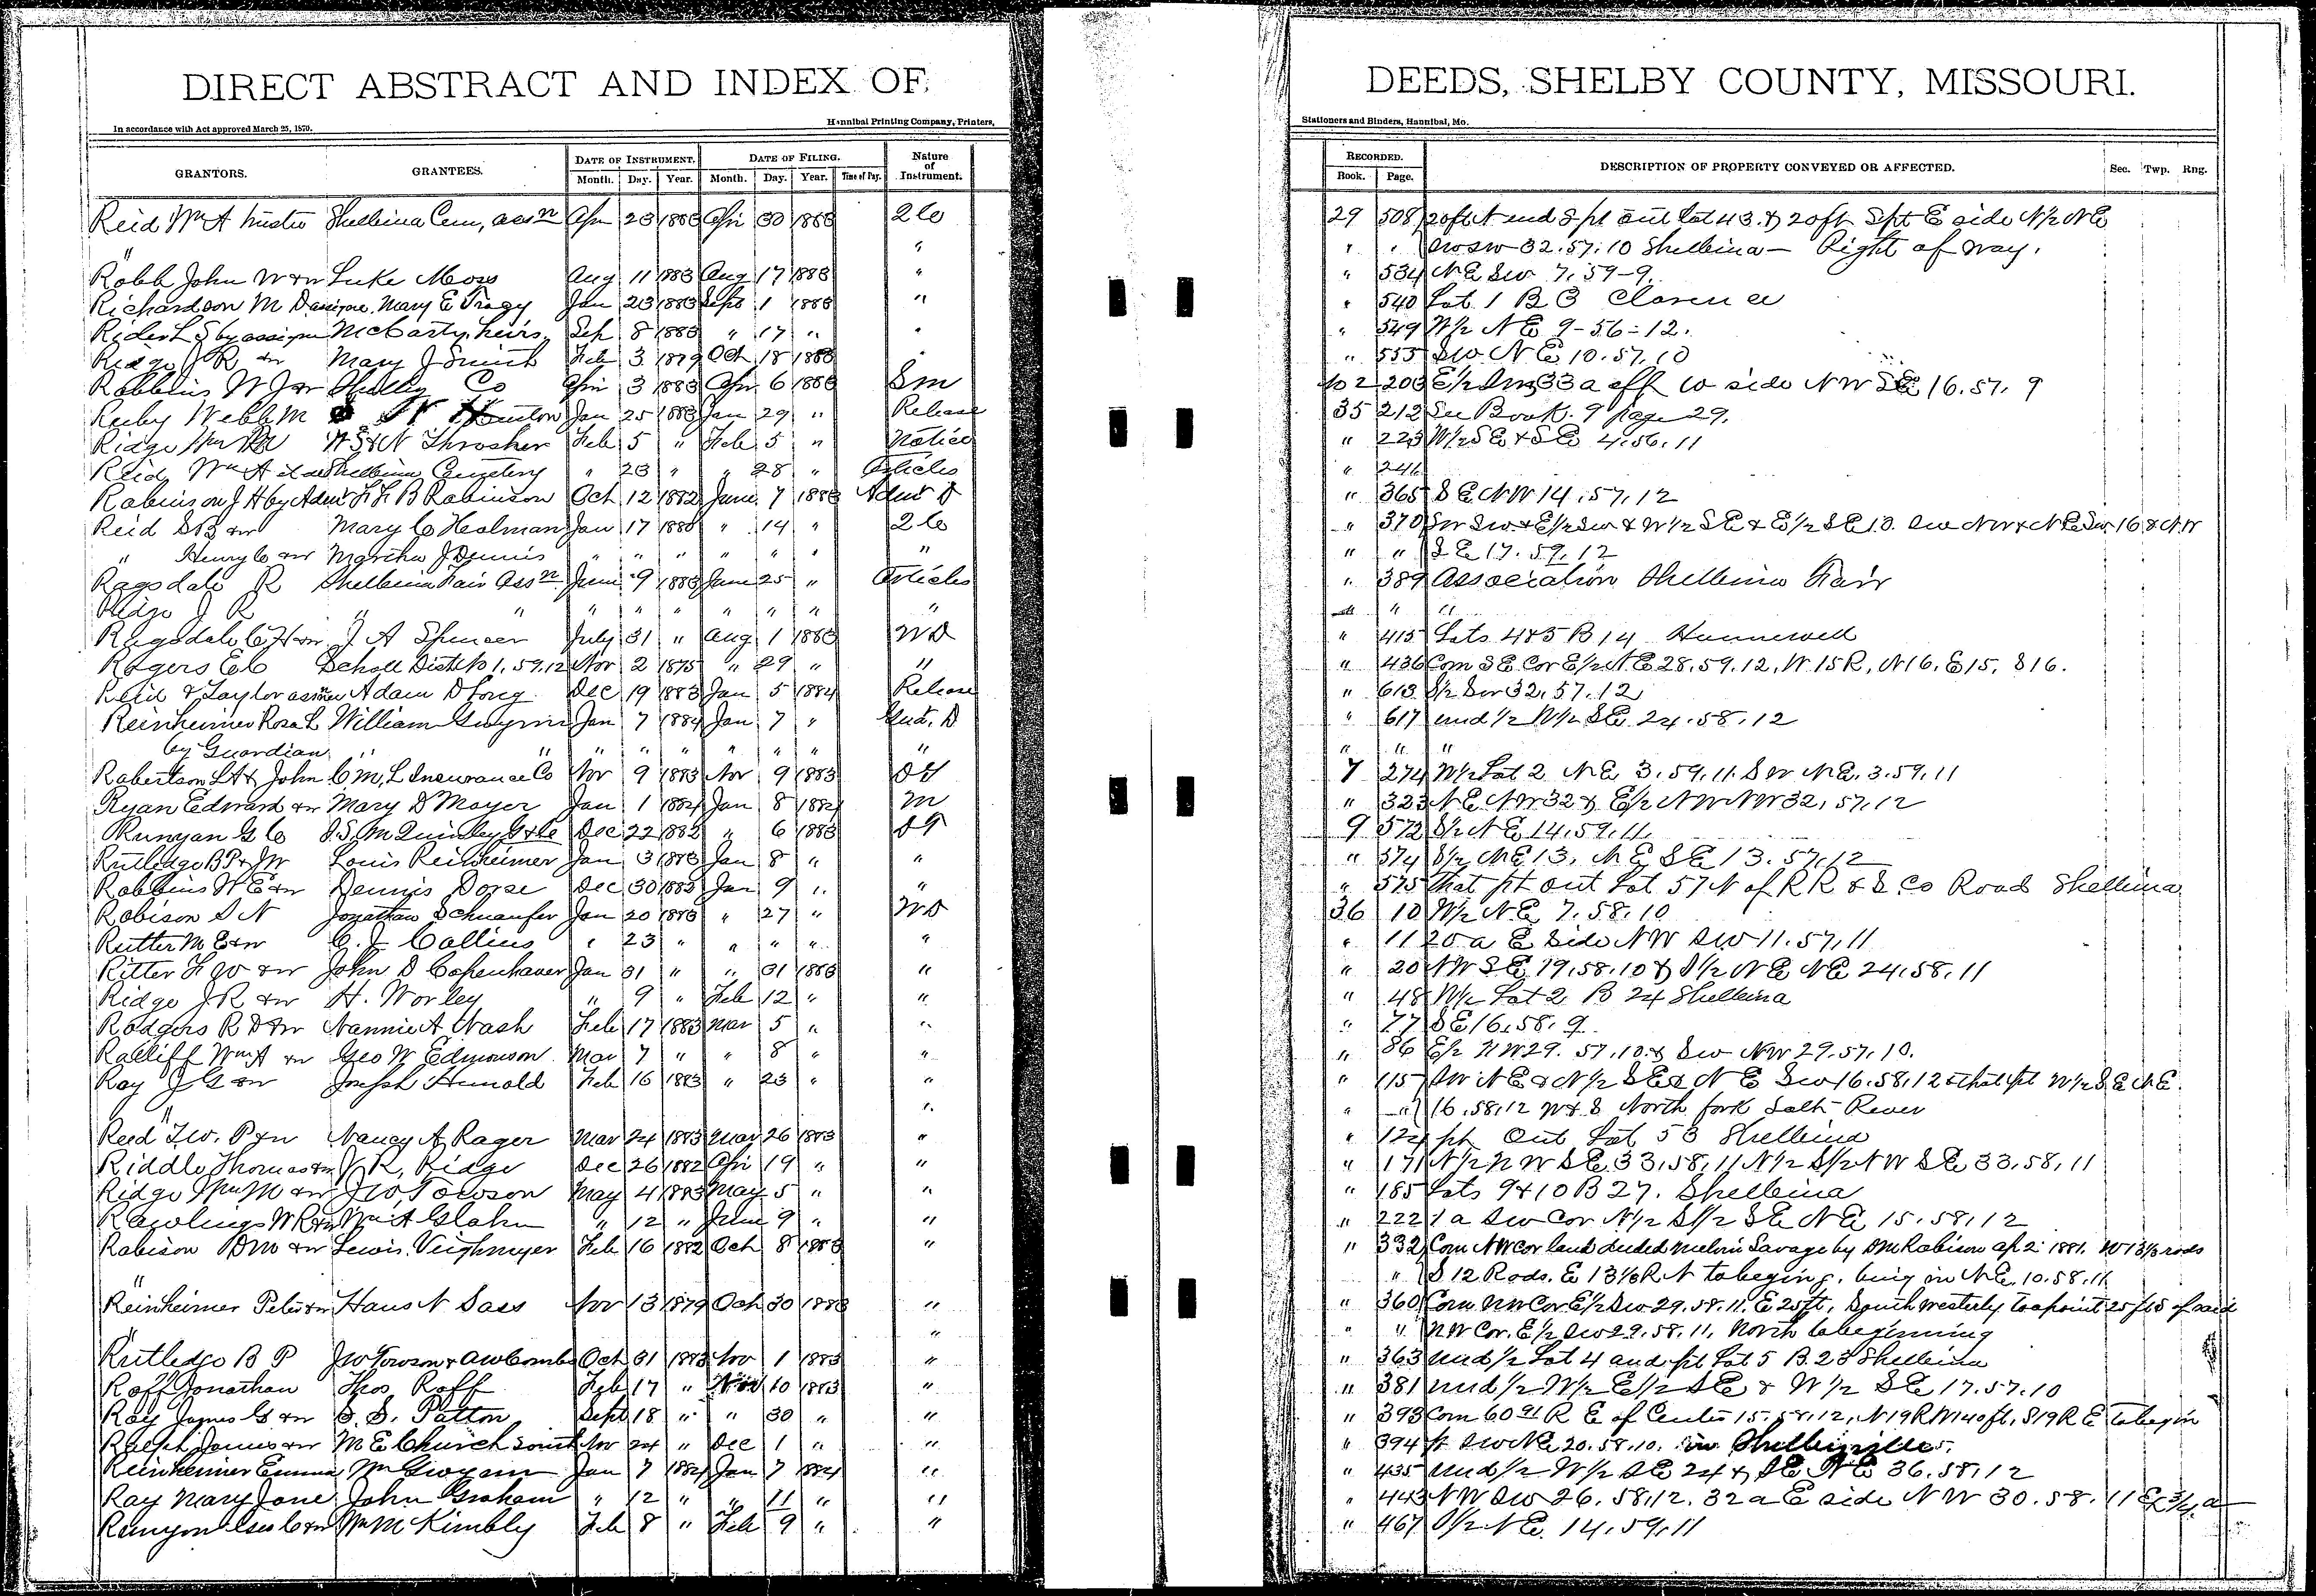 DIRECT ABSTRACT AND INDEX OF DEEDS, SHELBY COUNTY, MISSOURI.
In accordance with Act approved March 25, 1870. Hannibal Printing Company, Printers, Stationers and Binders, Hannibal, Mo.
GRANTORS. GRANTEES. DATE OF INSTRUMENT. DATE OF FILING. Nature of Instrument. RECORDED. DESCRIPTION OF PROPERTY CONVEYED OR AFFECTED. Sec. Twp. Rng.
Month. Day. Year. Month. Day. Year. Time of Day. Book. Page.
Reid Wm A trustee Shelbina Cem, assn Apr 23 1883 Apr 30 1883 2C 29 508 20ft N end S pt out lot 43 & 20ft S pt E side N/2 NE
" " " " SW SW 32.57.10 Shelbina - Right of way.
Robb John W & w Luke Moss Aug 11 1883 Aug 17 1883 " " 534 NE SW 7.59-9.
Richardson M D assignee Mary E Tragy Jan 23 1883 Sept 1 1883 " " 540 Lot 1 B 3 Clarence
Rider L S by assignee McCarty heirs Sep 8 1883 " 17 " " " 549 W/2 NE 9-56-12.
Ridge J R & w Mary J Smith Feb 3 1879 Oct 18 1883 " " 555 SW NE 10.57.10
Robbins W J & w Shelby Co Apr 3 1883 Apr 6 1883 Sm No 2 203 E/2 33 a off W side NW SE 16.57.9
Ruby Webb M Jan 25 1883 Jan 29 " Release 35 212 See Book 9 page 29.
Ridge Wm W S & N Thrasher Feb 5 " Feb 5 " Notice " 223 W/2 SE & SE 4.56.11
Reid Wm A Shelbina Cemetery " 23 " " 28 " Articles " 246
Robinson J H by Admr F F B Robinson Oct 12 1882 June 7 1883 Admr D " 365 SE NW 14.57.12
Reid S B & w Mary C Holman Jan 17 1880 " 14 " 2C " 370 SW SW & E/2 SW & W 1/2 SE & E 1/2 SE 10. SW NW & NE SW 16 & NW
" Henry C & w Martha J Dennis " " " " " " " " " SE 17.59.12
Ragsdale R Shelbina Fair Assn June 9 1883 June 25 " Articles " 389 Association Shelbina Fair
Ridge J R " " " " " " " " " " "
Ragsdale C H & w J A Spencer July 31 " Aug 1 1883 WD " 415 Lots 4&5 B 14 Hunnewell
Rogers E C School Dist No 1, 59.12 Nov 2 1875 " 29 " " " 436 Com SE Cor E/2 NE 28.59.12, W 15 R, N 16, E 15, S 16.
Reid & Taylor assnee Adam D Long Dec 19 1883 Jan 5 1884 Release " 613 S/2 SW 32.57.12
Reinheimer Rosa L William Gwynn Jan 7 1884 Jan 7 " Gud. D " 617 und 1/2 W/2 SE 24.58.12
by Guardian " " " " " " " " " " " "
Robertson L A & John C M, L Insurance Co Nov 9 1883 Nov 9 1883 DT 7 274 W/2 Lot 2 NE 3.59.11. SW NE. 3.59.11
Ryan Edward & w Mary D Moyer Jan 1 1884 Jan 8 1884 M " 323 NE NW 32 & E/2 NW NW 32.57.12
Runyan G C J.S. McQuinley Dec 22 1882 " 6 1883 DT 9 572 S/2 NE 14.59.11.
Rutledge B P & J W Louis Reinheimer Jan 3 1883 Jan 8 " " " 574 S/2 NE 13. NE SE 13.57.12
Robbins W E & w Dennis Dorse Dec 30 1882 Jan 9 " " " 575 That pt out Lot 57 N of R R & S. Co Road Shelbina
Robison S N Jonathan Schnaufer Jan 20 1883 " 27 " WD 36 10 W/2 NE 7.58.10
Rutter M E & w C. J. Collins " 23 " " " " " " 11 20 a E side NW SW 11.57.11
Ritter F W & w John D Copenhaver Jan 31 " " 31 1883 " " 20 NW SE 19.58.10 & S/2 NE NE 24.58.11
Ridge J R & w H. Worley " 9 " Feb 12 " " " 48 W/2 Lot 2 B 24 Shelbina
Rodgers R D & w Nannie A Nash Feb 17 1883 Mar 5 " " " 77 SE 16.58.9.
Ratliff Wm A & w Geo W Edmonson Mar 7 " " 8 " " " 86 E/2 NW 29.57.10 & SW NW 29.57.10.
Ray J G & w Joseph Hunold Feb 16 1883 " 23 " " " 115 SW NE & N/2 SE & NE SW 16.58.12 & that pt W/2 SE NE
" " " " 16.58.12 W & S North fork Salt River
Reed T. W. P & w Nancy A Rager Mar 24 1883 Mar 26 1883 " " 124 pt Out Lot 53 Shelbina
Riddle Thomas & w J R, Ridge Dec 26 1882 Apr 19 " " " 171 N/2 NW SE 33.58.11 N/2 S/2 NW SE 33.58.11
Ridge Wm M & w J W, Towson May 4 1883 May 5 " " " 185 Lots 9 & 10 B 27. Shelbina
Rawlings W R & w Wm A Glahn " 12 " June 9 " " " 222 1 a SW Cor N/2 S/2 SE NE 15.58.12
Robison D M & w Lewis Veighmeyer Feb 16 1882 Oct 8 1883 " " 332 Com NW Cor land deeded Melvin Savage by D M Robison Ap 2 1881. W 13 1/3 rods
" " S 12 Rods. E 13 1/3 R N to beging. being in NE. 10.58.11
Reinheimer Peter & w Hans N Sass Nov 13 1879 Oct 30 1883 " " 360 Com NW Cor E/2 SW 29.58.11. E 25ft, South westerly to a point 25 ft S of said
" " " " NW Cor. E 1/2 SW 29.58.11, North to beginning
Rutledge B P J W Towson & A W Combs Oct 31 1883 Nov 1 1883 " " 363 und 1/2 Lot 4 and pt Lot 5 B. 23 Shelbina
Roff Jonathan Thos Roff Feb 17 " Nov 10 1883 " " 381 und 1/2 W/2 E 1/2 SE & W 1/2 SE 17.57.10
Ray James G & w S. S. Patton Sept 18 " " 30 " " " 393 Com 60 R E of Center 15.58.12, N 19 R W 140 ft, S 19 R E to begin
Ralph James & w M E Church South Nov 24 " Dec 1 " " " 394 pt SW NE 20.58.10. in Shelbyville.
Reinheimer Emma Wm Gwynn Jan 7 1884 Jan 7 1884 " " 435 und 1/2 W 1/2 SE 24 & SE NE 36.58.12
Ray Mary Jane John Graham " 12 " " 11 " " " 443 NW SW 26.58.12. 32 a E side NW 30.58.11
Runyon Geo C & w Wm M Kimbly Feb 8 " Feb 9 " " " 467 S/2 NE. 14.59.11